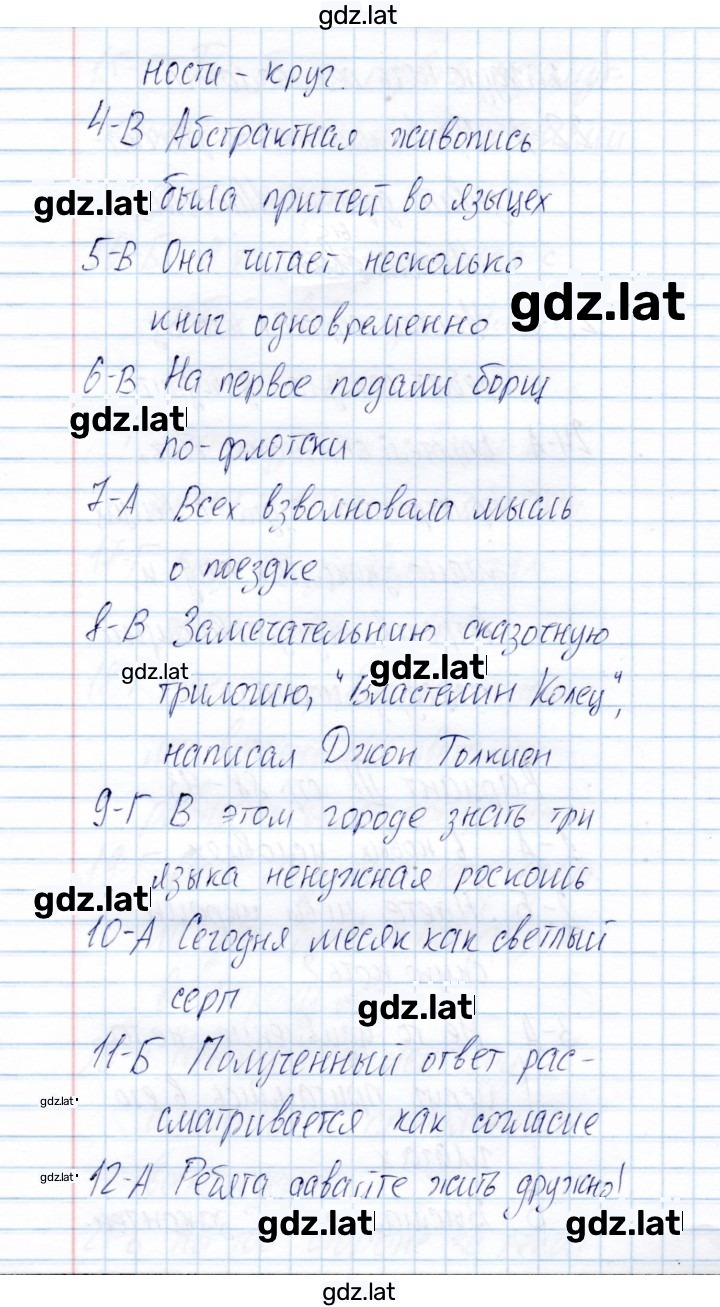 gdz.lat
ности - круг.
4-В Абстрактная живопись
gdz.lat была притчей во языцех
5-В Она читает несколько
gdz.lat
книг одновременно
6-В На первое подали борщ
gdz.lat
по-флотски
7-А Всех взволновала мысль
о поездке
8-В Замечательнию сказочную
gdz.lat gdz.lat
трилогию, "Властелин Колец",
написал Джон Толкиен
9-Г В этом городе знать три
gdz.lat языка ненужная роскошь
10-А Сегодня месяк как светлый
серп
gdz.lat
11-Б Полученный ответ рас-
gdz.lat
сматривается как согласие
gdz.lat 12-А Ребята давайте жить дружно!
gdz.lat gdz.lat
gdz.lat